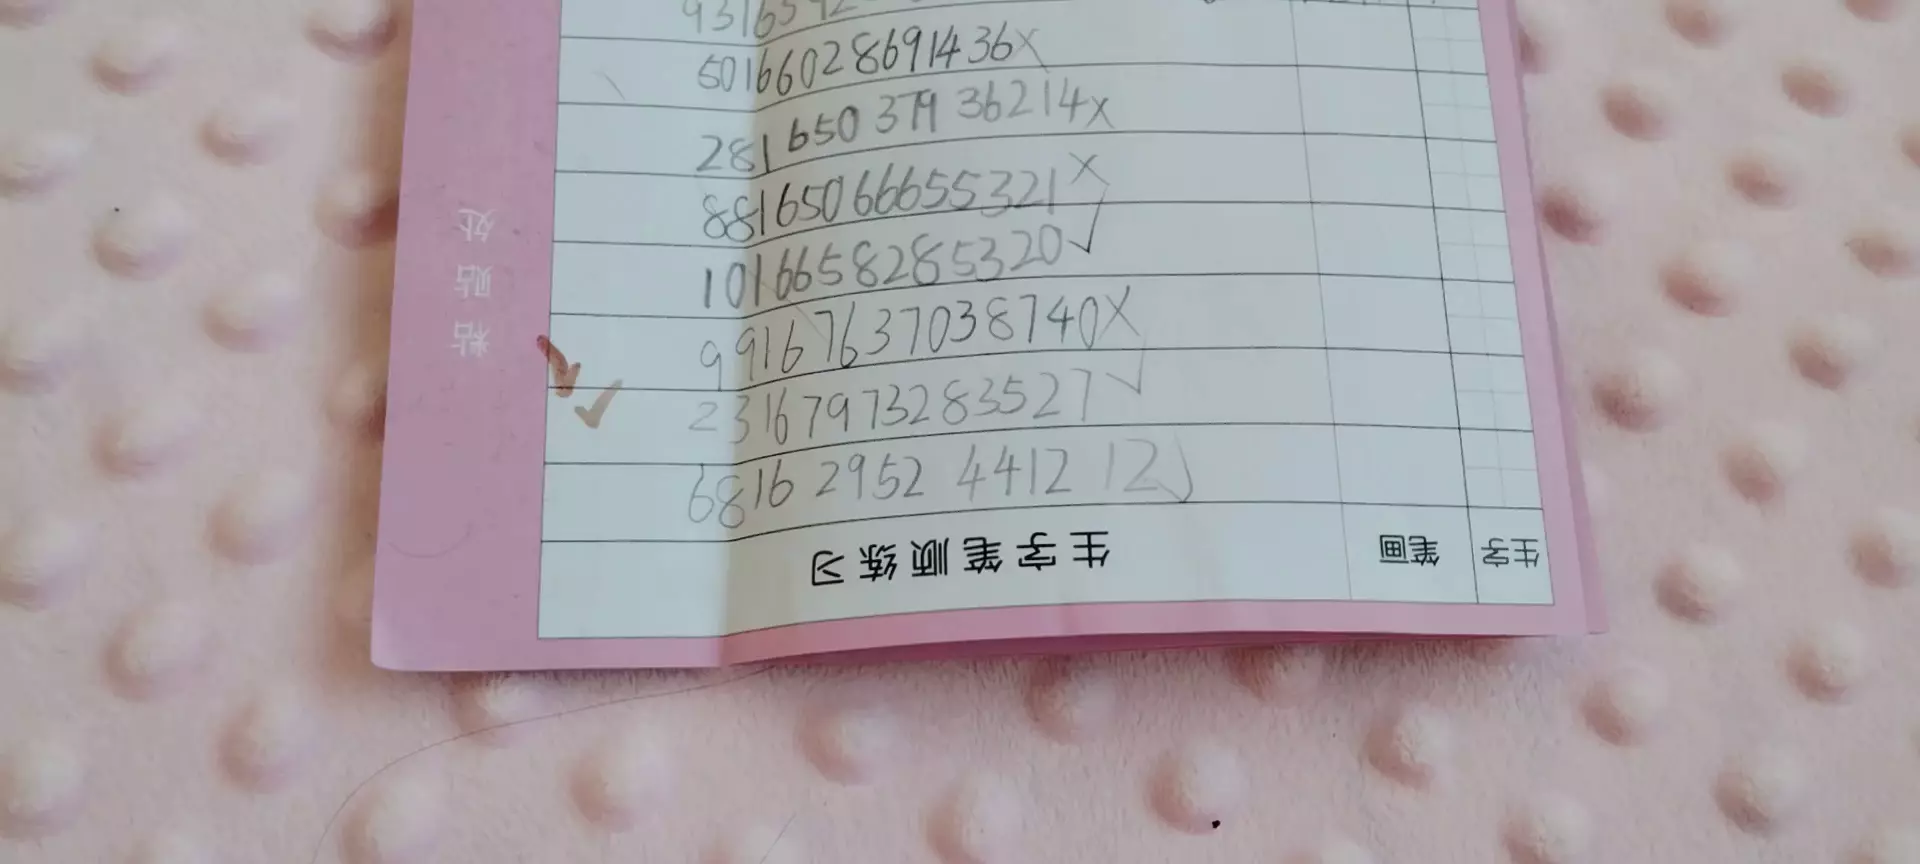 501660286 91436×
281650 379 36214×
88165066655321×
1016658285320√
99167637038740×
23167973283527√
68162952 441212√
生字笔顺练习
笔画
生字
粘贴处